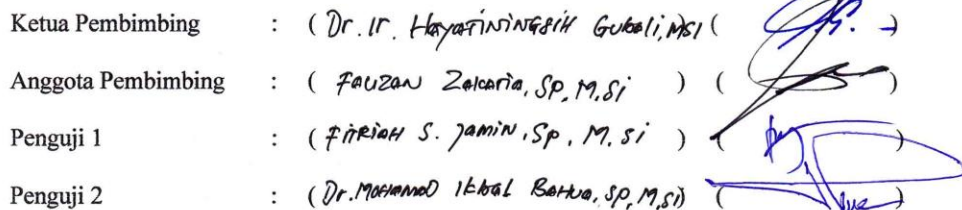 Ketua Pembimbing : ( Dr. Ir. Hayatiningsih Gubali, MSI ) ( )
Anggota Pembimbing : ( Fauzan Zakaria, Sp, M.Si ) ( )
Penguji 1 : ( Fitriah S. Jamin, Sp, M.Si ) ( )
Penguji 2 : ( Dr. Mohamad Ikbal Bahua, SP, M,Si) ( )